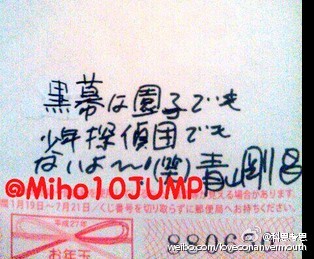 黒幕は園子でも
少年探偵団でも
ないよ〜!(笑)青山剛昌
@Miho10JUMP
見える場合があります。
間1月19日〜7月21日/くじ番号を切り取らずに郵便局へお持ちください。
平成27年
お年玉
weibo.com/loveconanvermouth